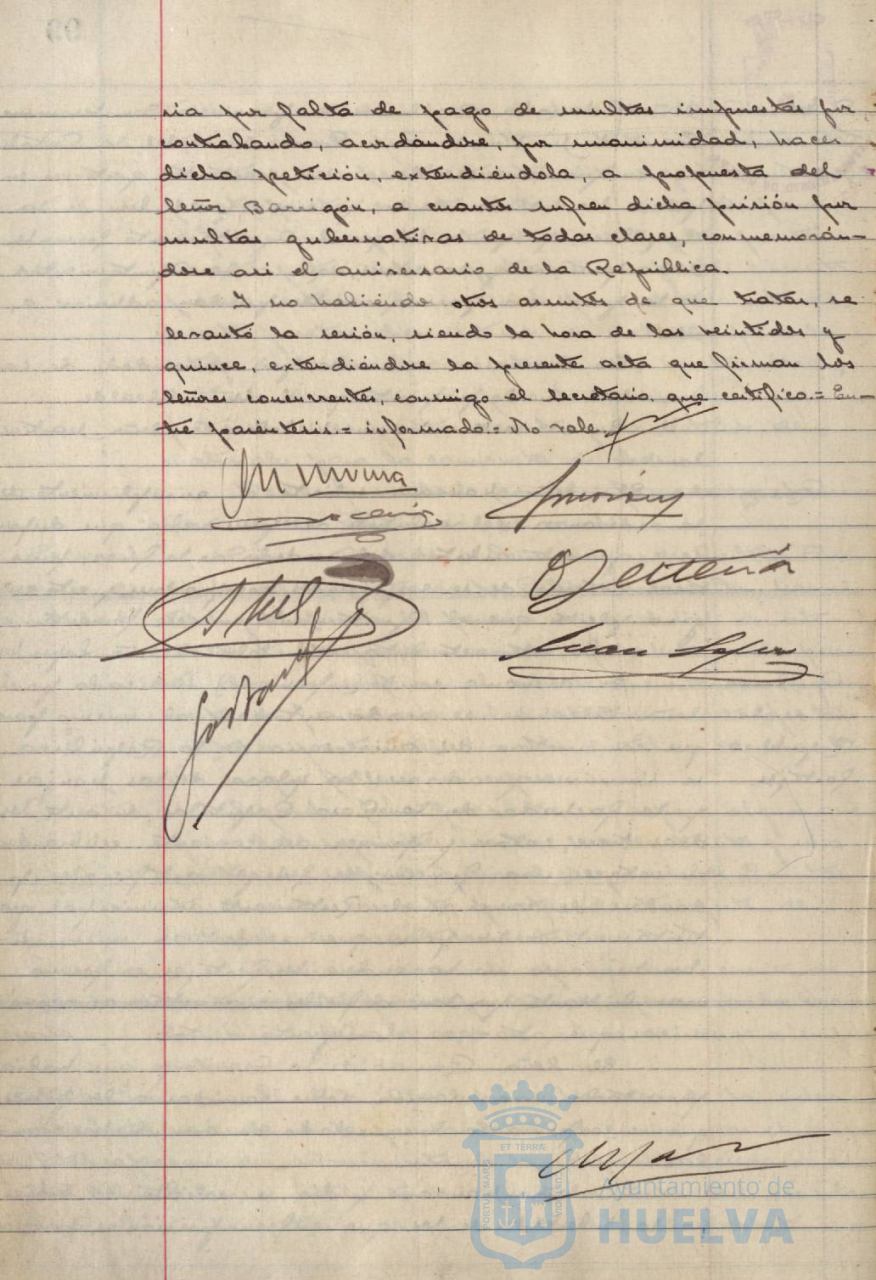 ria por falta de pago de multas impuestas por
contrabando, acordándose, por unanimidad, hacer
dicha petición, extendiéndola, a propuesta del
Señor Barrigón, a cuantos sufren dicha prisión por
multas gubernativas de todas clases, conmemorán-
dose así el aniversario de la República.
Y no habiendo otros asuntos de que tratar, se
levantó la sesión, siendo la hora de las veintidos y
quince, extendiéndose la presente acta que firman los
señores concurrentes, conmigo el secretario, que certifico.= En-
tre paréntesis.= informado.= No vale.
ET TERRÆ
PORTUS MARIS
CUSTODIA
Ayuntamiento de
HUELVA